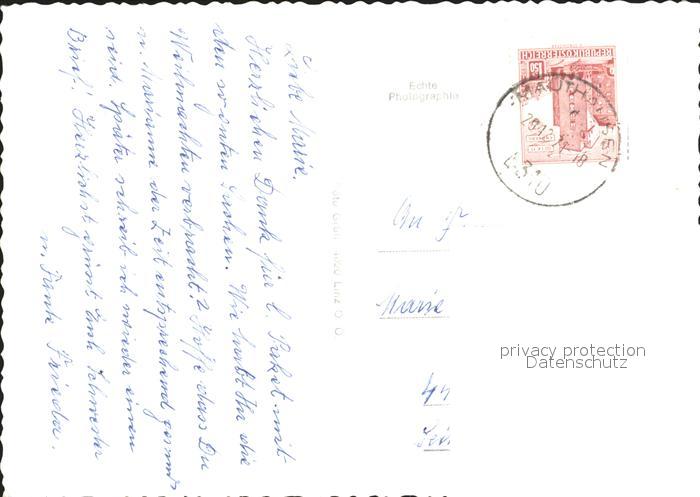 Liebe Marie.
Herzlichen Dank für l. Paket mit
den Sachen. Wie habt Ihr die
Weihnachten verbracht? Hoffe dass Du
u. Marianne der Zeit entsprechend gesund
seid. Später schreib ich wieder einen
Brief! Herzlichst grüsst Euch Schwester
u. Tante Frieda.
Echte
Photographie
REPUBLIK ÖSTERREICH
1.50
MAUTHAUSEN
4310
An Fr.
Marie
privacy protection
Datenschutz